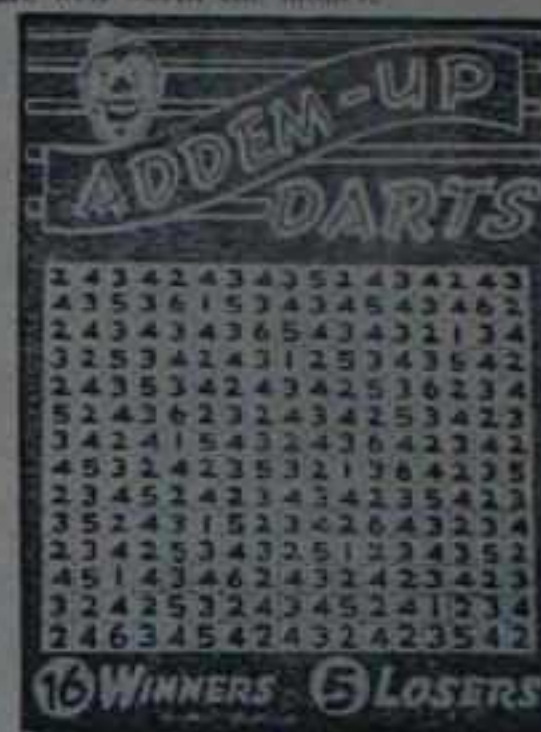 ADDEM-UP
DARTS
2 4 3 4 2 4 3 4 3 5 2 4 3 4 2 4 3
4 3 5 3 6 1 5 3 4 3 4 5 4 3 4 6 2
2 4 3 4 3 4 3 6 5 4 3 4 3 2 1 3 4
3 2 5 3 4 2 4 3 1 2 5 3 4 3 5 4 2
2 4 3 5 3 4 2 4 3 4 2 5 3 6 2 3 4
5 2 4 3 6 2 3 2 4 3 4 2 5 3 4 2 3
3 4 2 4 1 5 4 3 2 4 3 6 4 2 3 4 2
4 5 3 2 4 2 3 5 3 2 1 3 6 4 2 3 5
2 3 4 5 2 4 2 3 4 3 4 2 3 5 4 2 3
3 5 2 4 3 1 5 2 3 4 2 6 4 3 2 3 4
2 3 4 2 5 3 4 3 2 5 1 2 3 4 3 5 2
4 5 1 4 3 4 6 2 4 3 2 4 2 3 4 2 3
3 2 4 2 5 3 2 4 3 4 5 2 4 1 2 3 4
2 4 6 3 4 5 4 2 4 3 2 4 2 3 5 4 2
16 WINNERS 5 LOSERS